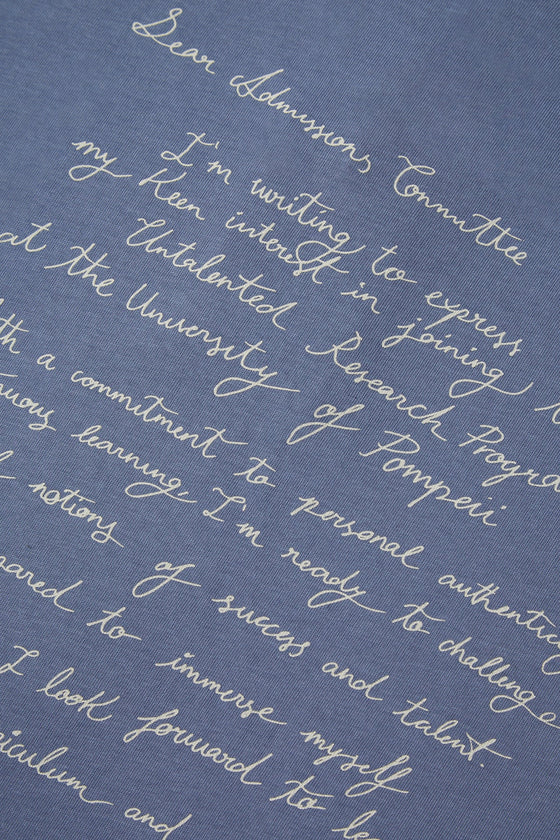 Dear Admissions Committee
I'm writing to express
my Keen interest in joining
Untalented Research Progra
at the University of Pompeii
th a commitment to personal authentic
nuous learning, I'm ready to challenge
notions of success and talent.
pared to immerse myself
I look forward to
iculum and